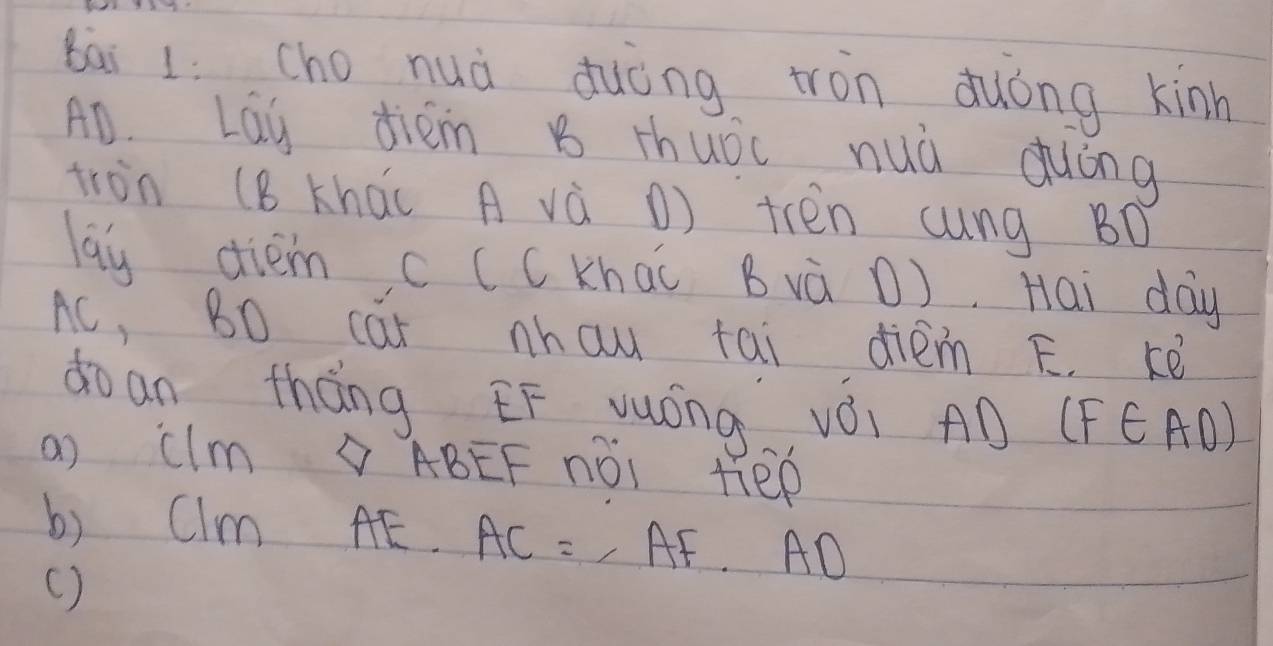 Bài 1: Cho nuả đường tròn đường kính
AD. Lấy điểm B thuộc nuả đường
tròn (B khác A và D) trên cung BD
lấy điểm C (C khác B và D). Hai dây
AC, BD cắt nhau tại điểm E. kẻ
đoạn thẳng EF vuông với AD (F ∈ AD)
a) c/m ◊ ABEF nội tiếp
b) C/m AE. AC = AF. AD
c)